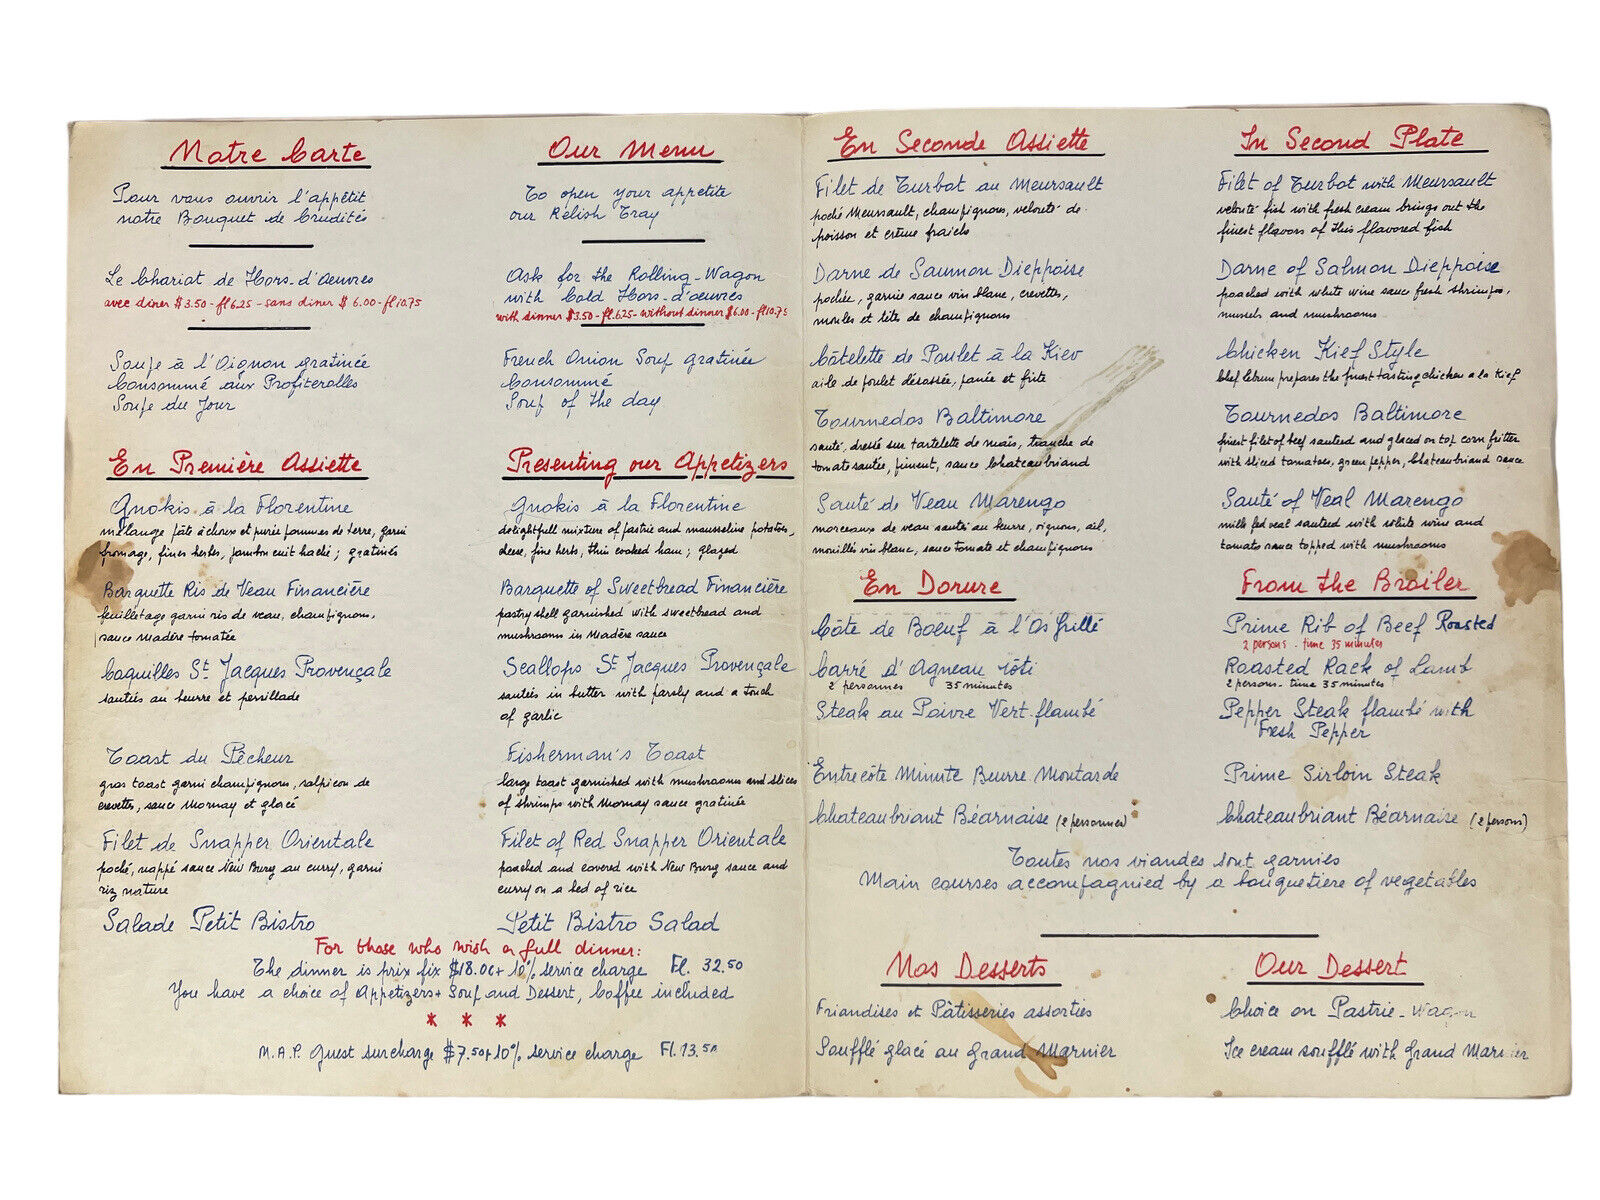 Notre Carte
Pour vous ouvrir l'appêtit
notre Bouquet de Crudités
Le Chariot de Hors-d'oeuvres
avec diner $3.50 - fl 6.25 - sans diner $ 6.00 - fl 10.75
Soupe à l'Oignon gratinée
Consommé aux Profiterolles
Soupe du Jour
En Première Assiette
Gnokis à la Florentine
mélange pâte à choux et purée pommes de terre, garni
fromage, fines herbes, jambon cuit haché; gratinés
Barquette Ris de Veau Financière
feuilletage garni ris de veau, champignons,
sauce Madère tomatée
Coquilles St Jacques Provençale
sautées au beurre et persillade
Toast du Pêcheur
gros toast garni champignons, salpicon de
crevettes, sauce Mornay et glacé
Filet de Snapper Orientale
poché, nappé sauce New Burg au curry, garni
riz nature
Salade Petit Bistro
Our Menu
To open your appetite
our Relish Tray
Ask for the Rolling-Wagon
with Cold Hors-d'oeuvres
with dinner $3.50 - fl.6.25 - without dinner $6.00 - fl 10.75
French Onion Soup gratinée
Consommé
Soup of the day
Presenting our Appetizers
Gnokis à la Florentine
delightfull mixture of pastrie and mousseline potatoes,
cheese, fine herbs, thin cooked ham; glazed
Barquette of Sweetbread Financière
pastry shell garnished with sweetbread and
mushrooms in Madère sauce
Scallops St Jacques Provençale
sautées in butter with parsly and a touch
of garlic
Fisherman's Toast
large toast garnished with mushrooms and slices
of shrimps with Mornay sauce gratinée
Filet of Red Snapper Orientale
poached and covered with New Burg sauce and
curry on a bed of rice
Petit Bistro Salad
For those who wish a full dinner:
The dinner is prix fix $18.00 + 10% service charge Fl. 32.50
You have a choice of Appetizers + Soup and Dessert, Coffee included
* * *
M.A.P. Guest surcharge $7.50 + 10% service charge Fl. 13.50
En Seconde Assiette
Filet de Turbot au Meursault
poché Meursault, champignons, velouté de
poisson et crème fraiche
Darne de Saumon Dieppoise
pochée, garnie sauce vin blanc, crevettes,
moules et têtes de champignons
Côtelette de Poulet à la Kiev
aile de poulet désossée, panée et frite
Tournedos Baltimore
sauté, dressé sur tartelette de maïs, tranche de
tomate sautée, piment, sauce Chateaubriand
Sauté de Veau Marengo
morceaux de veau sauté au beurre, oignons, ail,
mouillés vin blanc, sauce tomate et champignons
En Dorure
Côte de Boeuf à l'Os Grillé
Carré d'Agneau rôti
2 personnes 35 minutes
Steak au Poivre Vert flambé
Entrecôte Minute Beurre Moutarde
Chateaubriant Béarnaise (2 personnes)
In Second Plate
Filet of Turbot with Meursault
velouté fish with fresh cream brings out the
finest flavors of this flavored fish
Darne of Salmon Dieppoise
poached with white wine sauce fresh shrimps,
mussels and mushrooms
Chicken Kief Style
Chef Lebrun prepares the finest tasting chicken a la Kief
Tournedos Baltimore
finest filet of beef sauteed and glaced on top corn fritter
with sliced tomatoes, green pepper, Chateaubriand sauce
Sauté of Veal Marengo
milk fed veal sauteed with white wine and
tomato sauce topped with mushrooms
From the Broiler
Prime Rib of Beef Roasted
2 persons - time 35 minutes
Roasted Rack of Lamb
2 persons - time 35 minutes
Pepper Steak flambé with
Fresh Pepper
Prime Sirloin Steak
Chateaubriant Béarnaise (2 persons)
Toutes nos viandes sont garnies
Main courses accompagnied by a bouquetiere of vegetables
Nos Desserts
Friandises et Pâtisseries assorties
Soufflé glacé au Grand Marnier
Our Dessert
Choice on Pastrie-Wagon
Ice cream soufflé with Grand Marnier